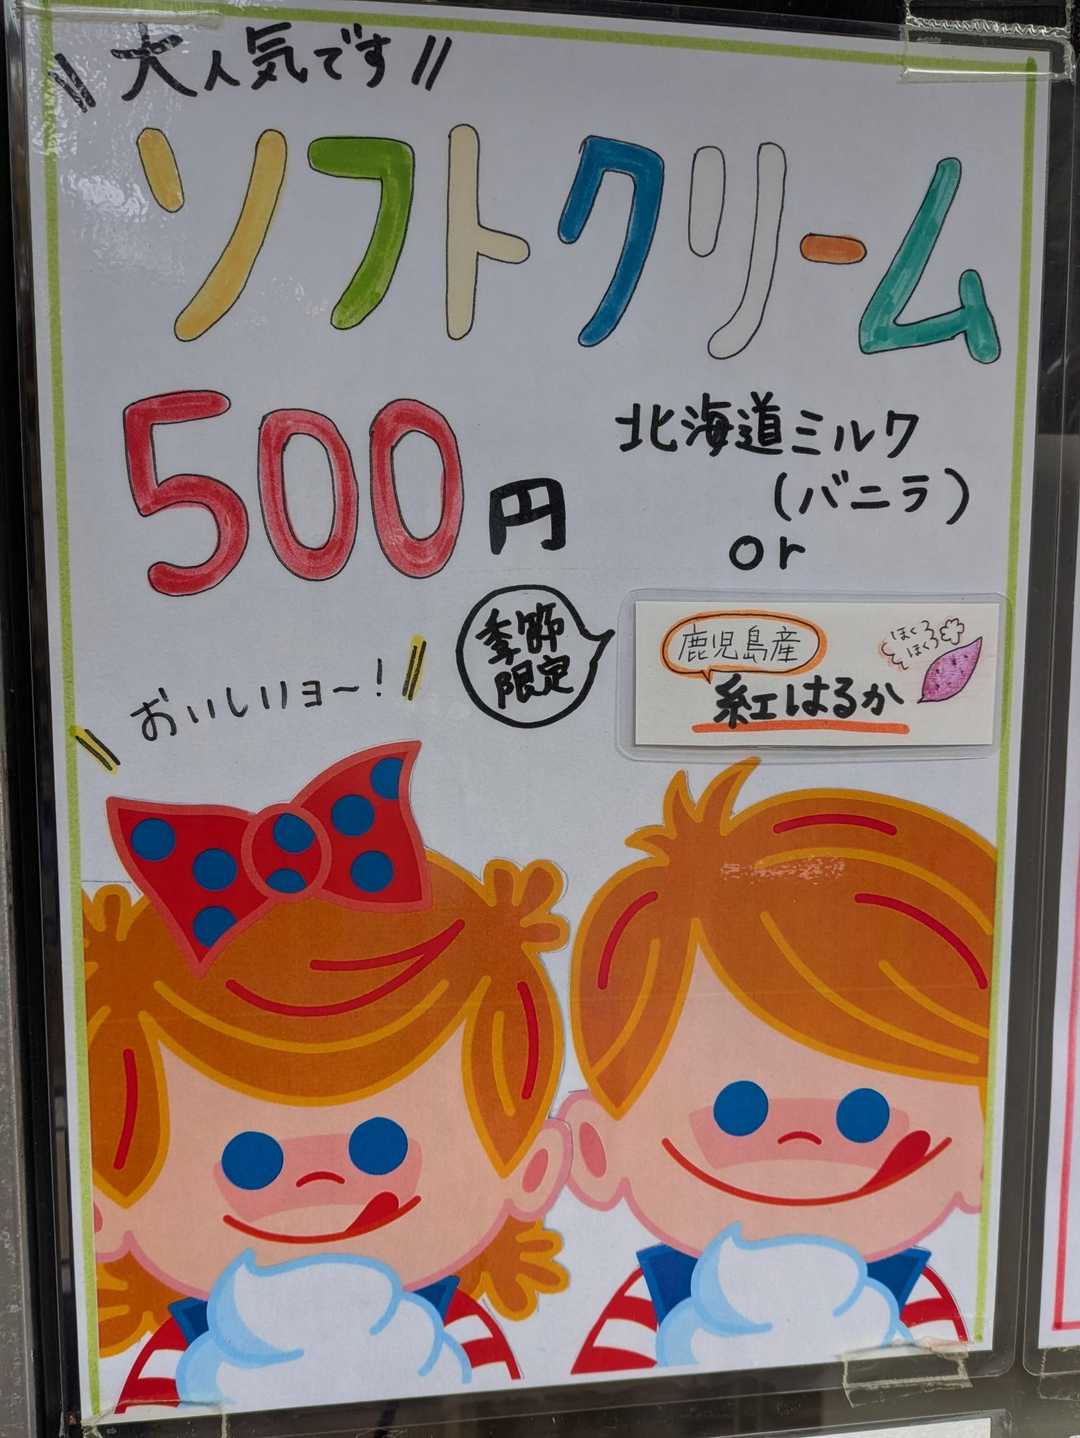 \\大人気です//
ソフトクリーム
500円
北海道ミルク
(バニラ)
or
季節
限定
鹿児島産
紅はるか
ほくほく
ほくほく
おいしいヨ～!